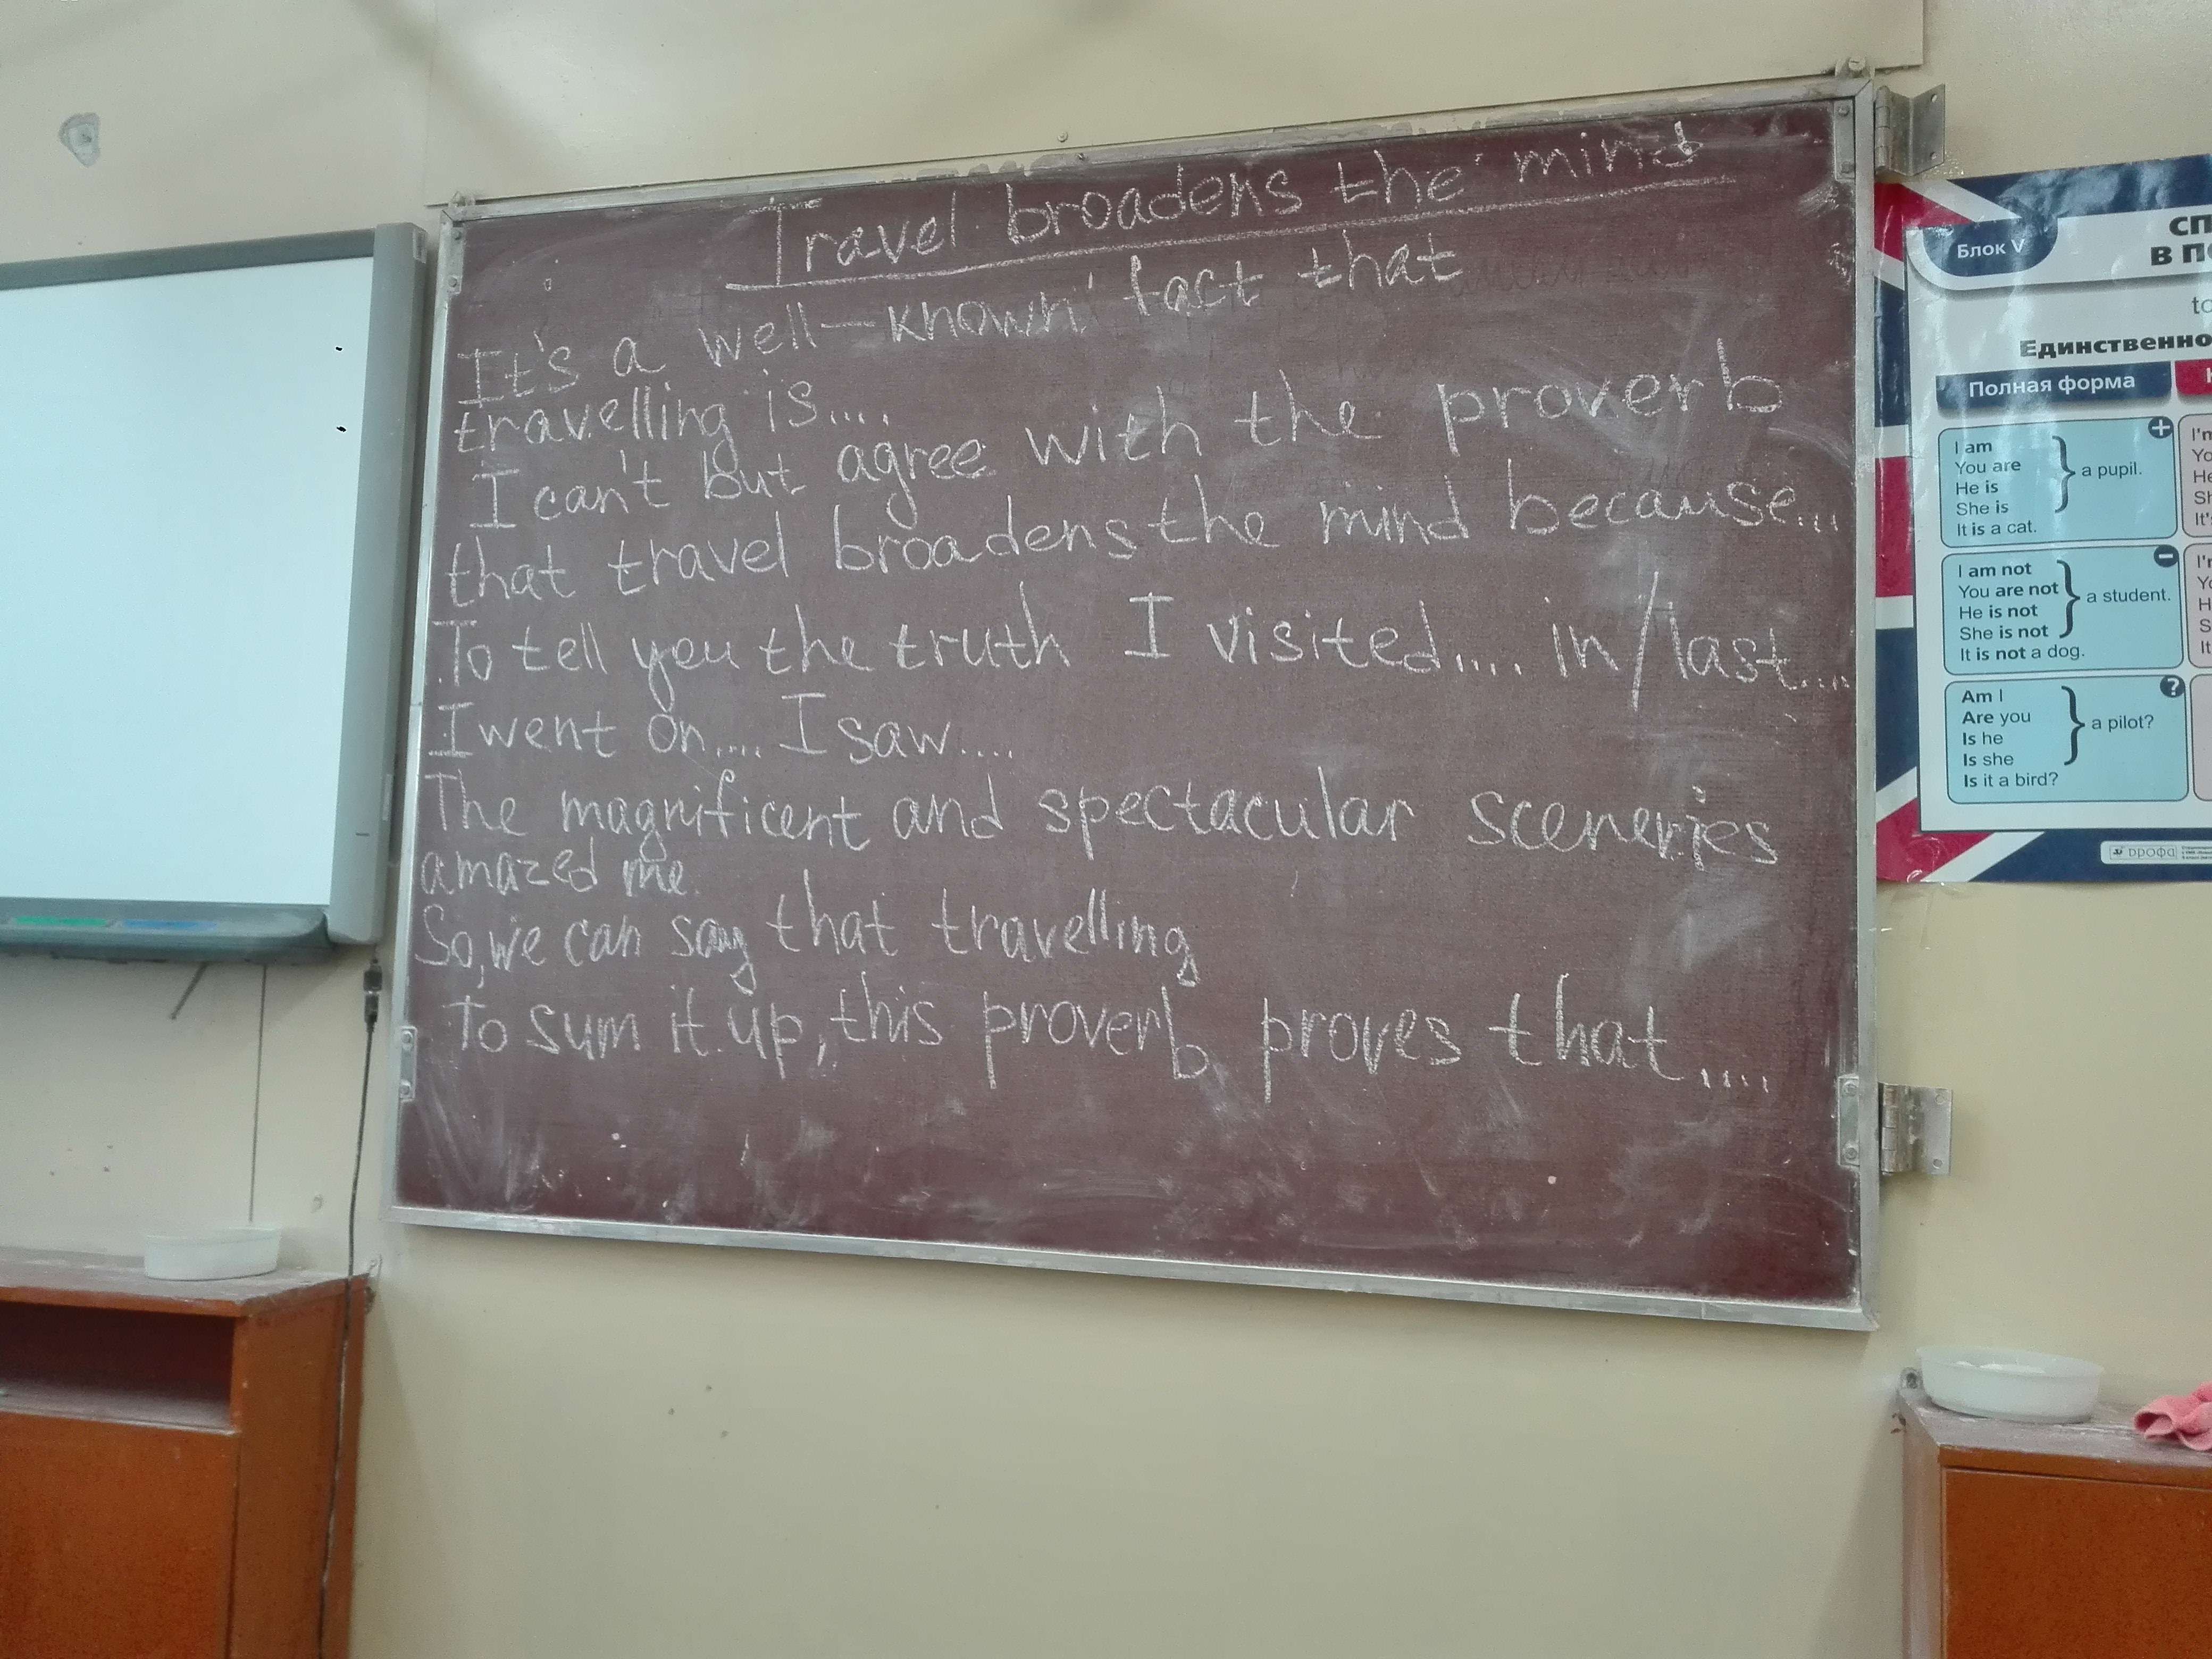 Travel broadens the mind
It's a well-known fact that
travelling is....
I can't but agree with the proverb
that travel broadens the mind because...
To tell you the truth I visited.... in/last...
I went on.... I saw....
The magnificent and spectacular sceneries
amazed me.
So, we can say that travelling
To sum it up, this proverb proves that....
Блок V
СП
В П
to
Единственно
Полная форма
I am
You are
He is
She is
a pupil.
It is a cat.
I am not
You are not
He is not
She is not
a student.
It is not a dog.
Am I
Are you
Is he
Is she
a pilot?
Is it a bird?
I'm
Yo
He
Sh
It's
I'm
Yo
H
S
It
дрофа